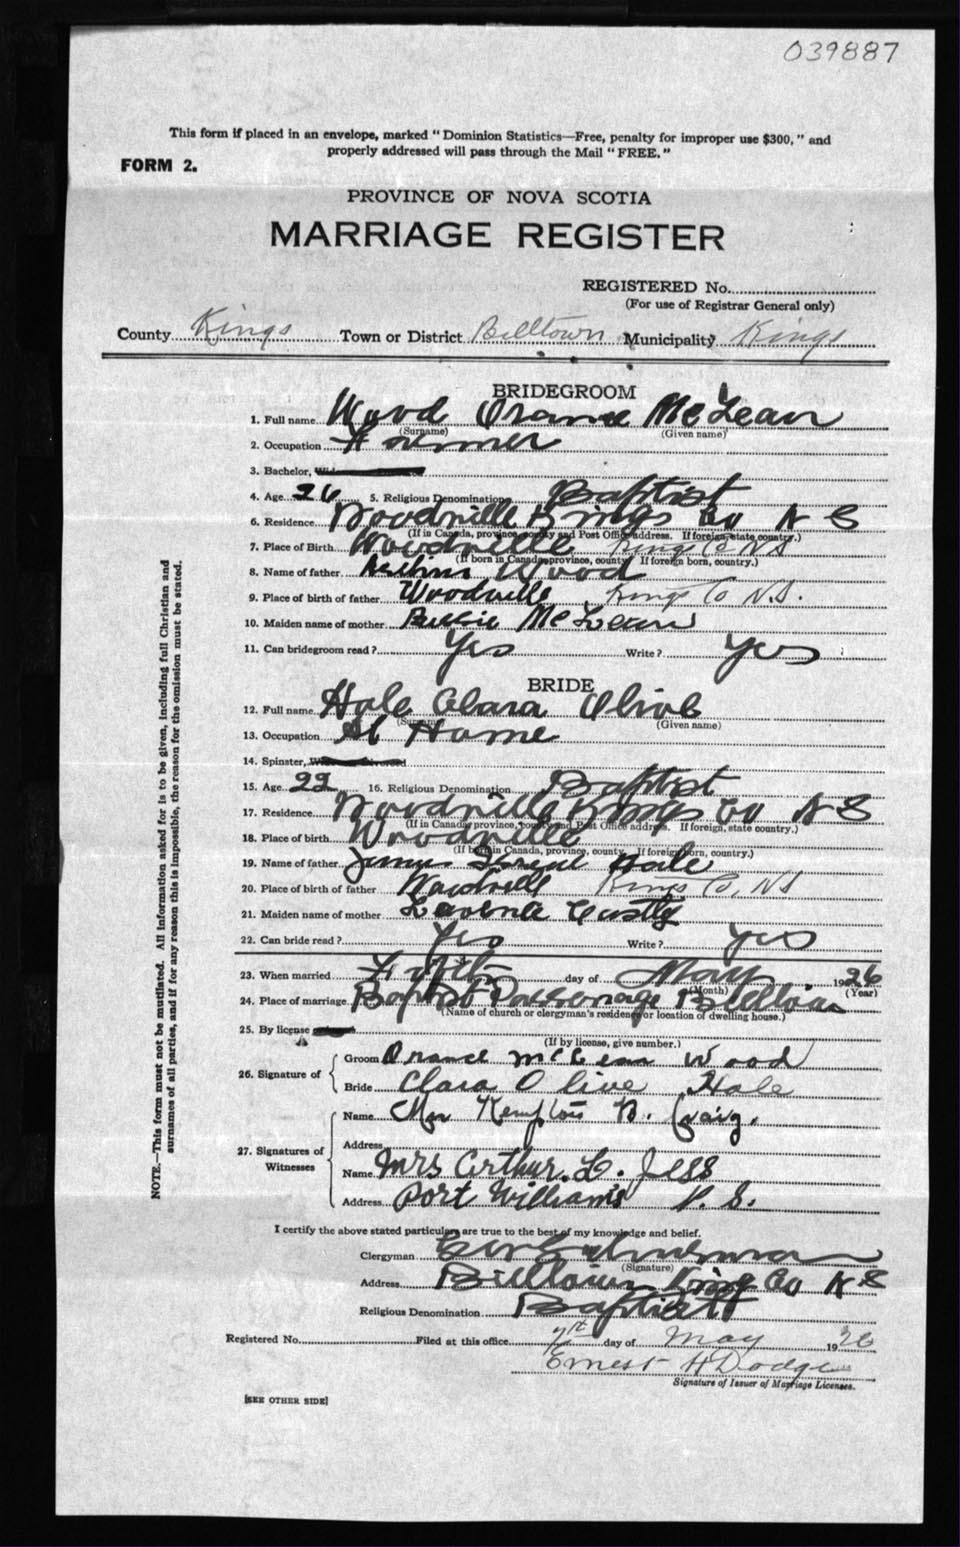 039887
This form if placed in an envelope, marked "Dominion Statistics—Free, penalty for improper use $300," and
properly addressed will pass through the Mail "FREE."
FORM 2.
PROVINCE OF NOVA SCOTIA
MARRIAGE REGISTER
REGISTERED No.
(For use of Registrar General only)
County Kings Town or District Billtown Municipality Kings
BRIDEGROOM
1. Full name Wood McLean
(Surname) (Given name)
2. Occupation Farmer
3. Bachelor,
4. Age 26 5. Religious Denomination Baptist
6. Residence Woodville Kings Co N S
(If in Canada, province, county and Post Office address. If foreign, state country.)
7. Place of Birth Woodville Kings Co NS
(If born in Canada, province, county. If foreign born, country.)
8. Name of father Wood
9. Place of birth of father Woodville Kings Co N.S.
10. Maiden name of mother McLean
11. Can bridegroom read? Yes Write? Yes
BRIDE
12. Full name Hale Clara Olive
(Surname) (Given name)
13. Occupation At Home
14. Spinster,
15. Age 22 16. Religious Denomination Baptist
17. Residence Woodville Kings Co N S
(If in Canada, province, county and Post Office address. If foreign, state country.)
18. Place of birth Woodville
(If born in Canada, province, county. If foreign born, country.)
19. Name of father James Hale
20. Place of birth of father Woodville Kings Co, NS
21. Maiden name of mother
22. Can bride read? Yes Write? Yes
23. When married day of May 1926
(Month) (Year)
24. Place of marriage Baptist Parsonage Billtown
(Name of church or clergyman's residence or location of dwelling house.)
25. By license
(If by license, give number.)
26. Signature of
Groom McLean Wood
Bride Clara Olive Hale
27. Signatures of Witnesses
Name Kempton B. Craig.
Address
Name Mrs Arthur L. Jess
Address Port Williams N. S.
I certify the above stated particulars are true to the best of my knowledge and belief.
Clergyman
(Signature)
Address Billtown Kings Co N S
Religious Denomination Baptist
Registered No. Filed at this office day of May 1926
Ernest H Dodge
Signature of Issuer of Marriage Licenses.
[SEE OTHER SIDE]
NOTE.—This form must not be mutilated. All information asked for is to be given, including full Christian and
surnames of all parties, and if for any reason this is impossible, the reason for the omission must be stated.